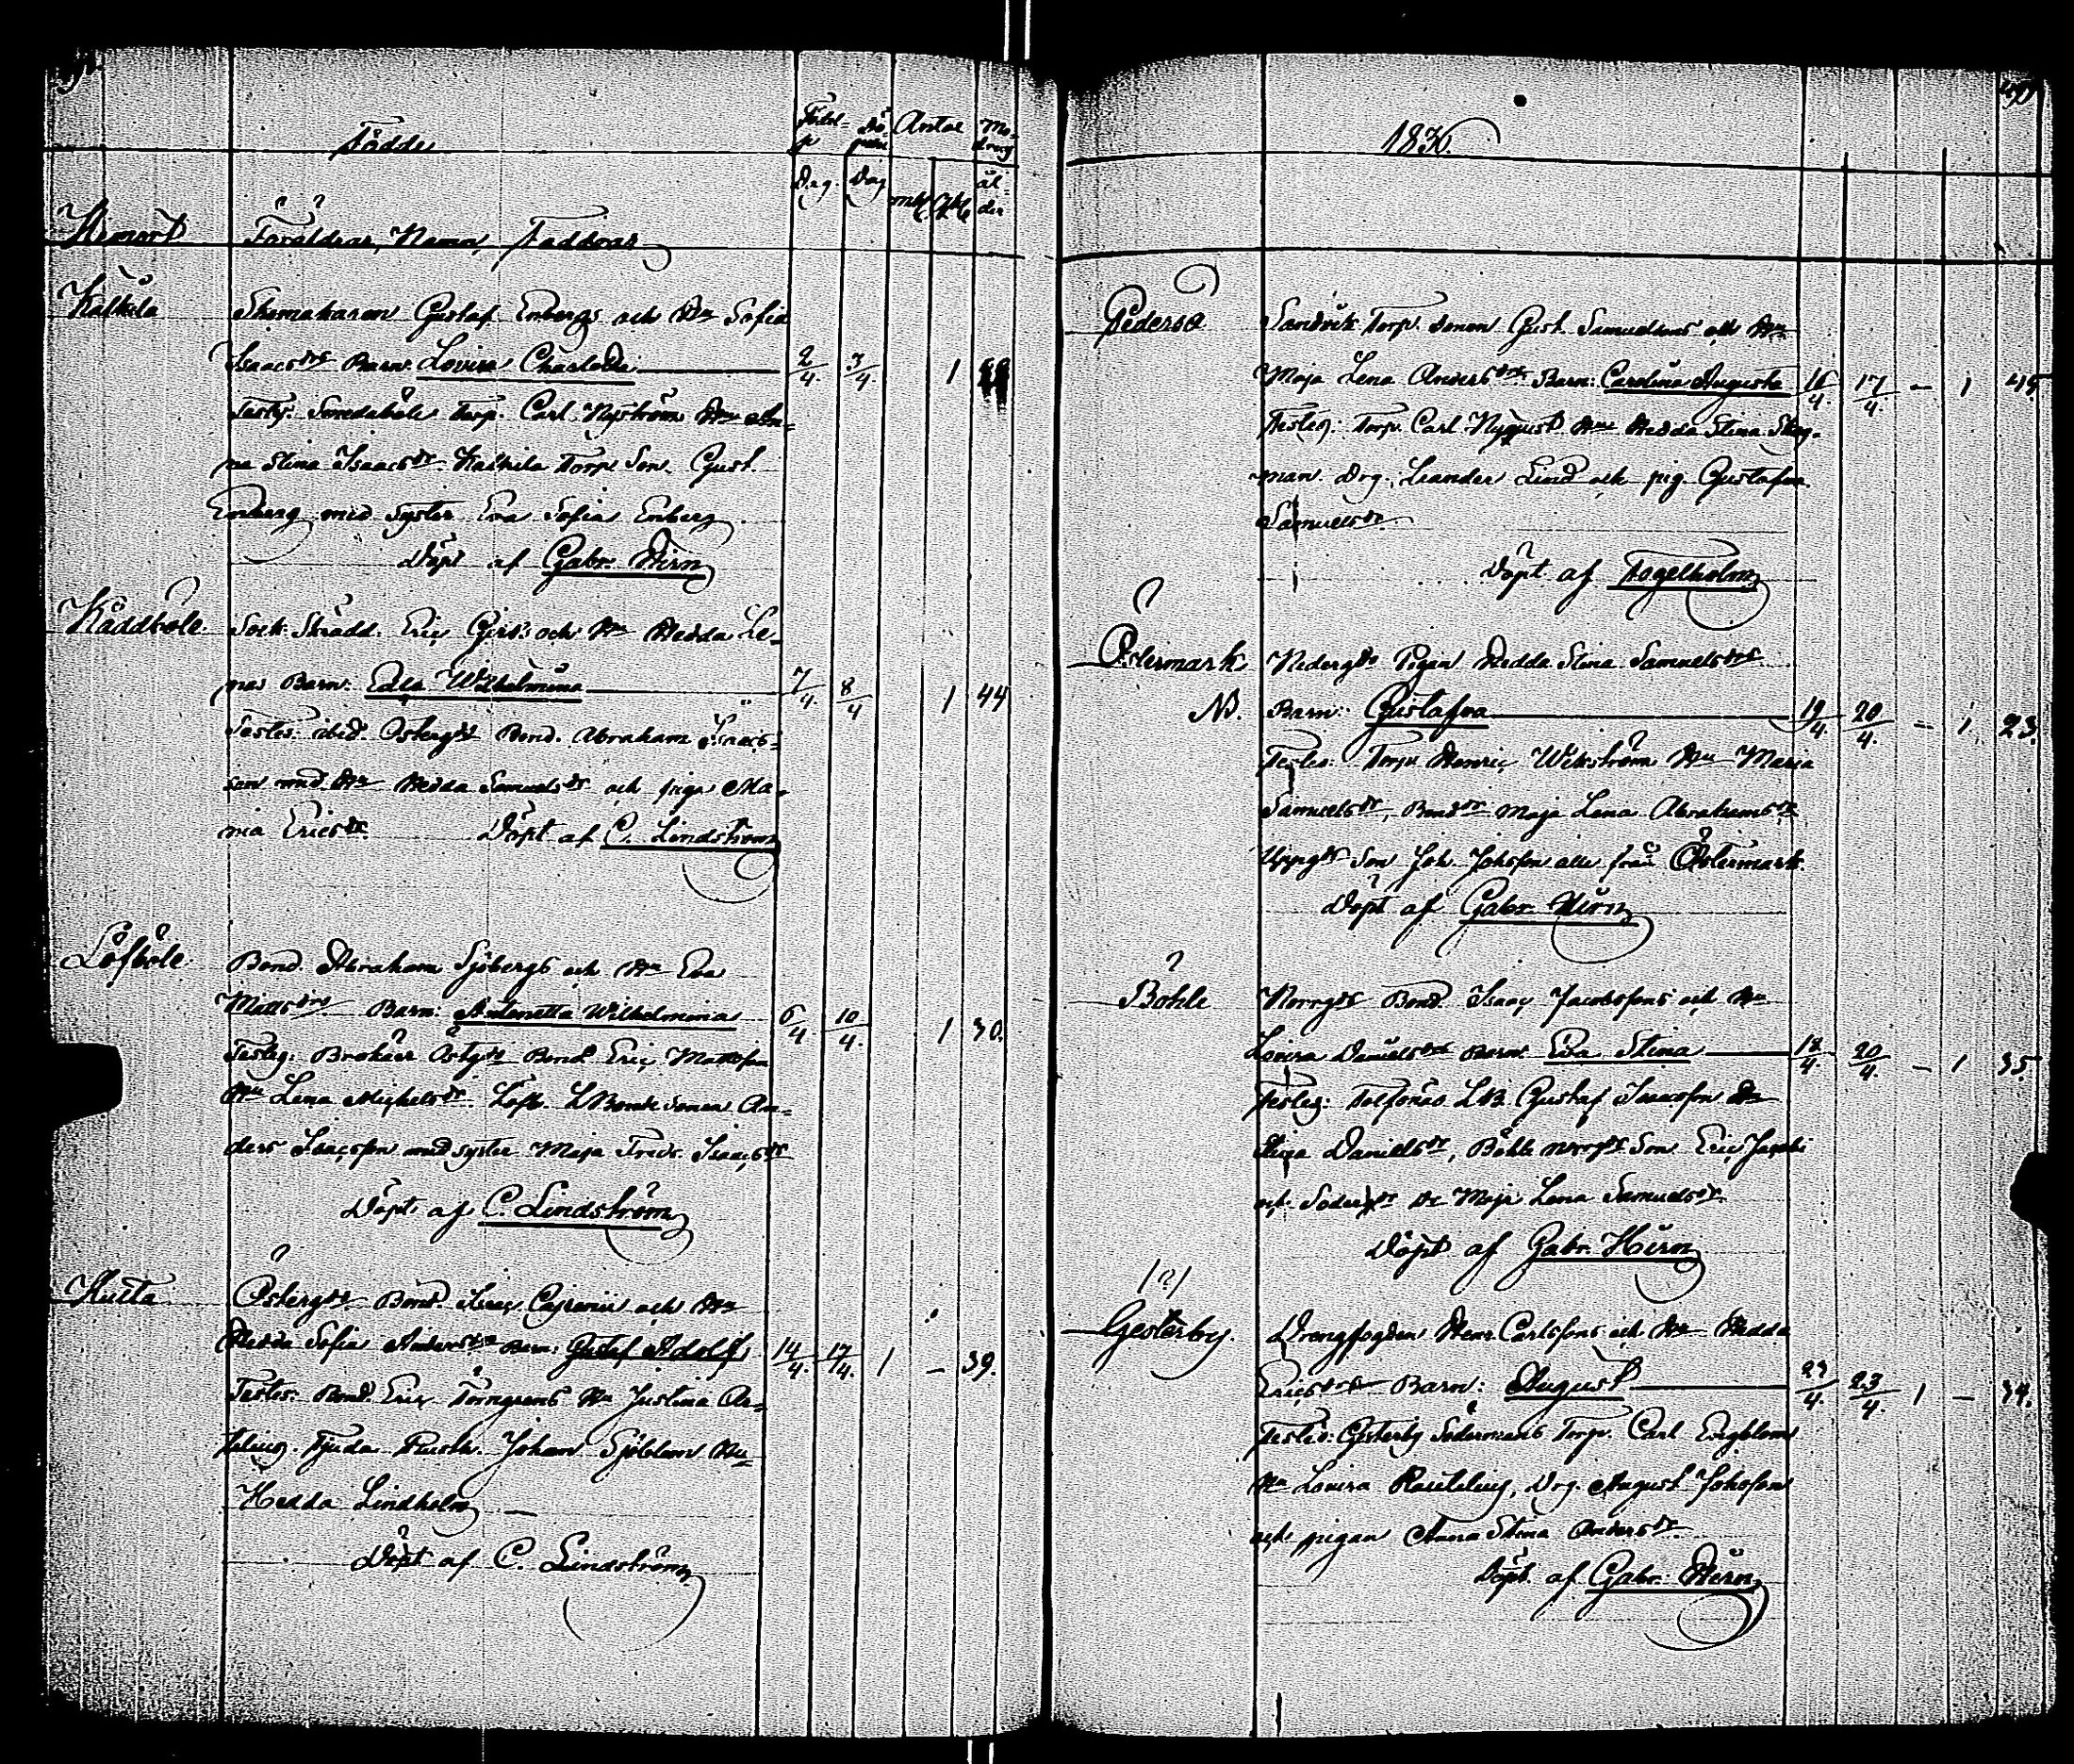 Födde
Födel-
se
Dag.
Dö-
pelse
Dag
Antal
mk qk
Mo-
drens
ål-
der
Hemort
Föräldrar, Namn, Faddrar
Kalkila
Skomakaren Gustaf Enbergs och Hu Sofia
Isaacsdrs Barn: Lovisa Charlotta 2/4. 3/4. 1
Testes: Smedsböle Torp. Carl Nyström Hu An-
na Stina Isaacsdr Kalkila Torp Son Gust.
Enberg med Syster Eva Sofia Enberg
Döpt af Gabr. Hirn
Käddböle
Sock. Skrädd. Eric Girs: och Hu Hedda Le-
nas Barn: Edla Wilhelmina 7/4. 8/4 1 44
Testes: ibid. Östergds Bond. Abraham Isacs-
son med Hu Hedda Samuelsdr och piga Ma-
ria Ericsdr Döpt af C. Lindström
Löfböle
Bond. Abraham Sjöbergs och Hu Eva
Mattsdrs Barn: Antonetta Wilhelmina 6/4 10/4. 1 30.
Testes: Östgds Bond Eric Mattsson
Hu Lena Michelsdr. Löfb. LBonde Sonen An-
ders Isacsson med syster Maja Fredr. Isaacsdr
Döpt af C. Lindström
Östergds Bond. Isaac och Hu
Hedda Sofia Andersdrs Barn: Gustaf Adolf 14/4. 17/4. 1 – 39.
Testes: Bond. Eric Törngrens Hu Justina
Tjuda Rusth. Johan Sjöblom Hu
Hedda Lindholm
Döpt af C. Lindström
1836.
Pedersö
Sandvik Torp. sonen Gust. Samuelsons och Hu
Maja Lena Andersdrs Barn: Carolina Augusta 16/4. 17/4. – 1
Testes: Torp. Carl Nyqvist Hu Hedda Stina Skog-
man. Drg. Leander Lind och pig. Gustafva
Samuelsdr
Döpt af Fogelholm
Östermark
Nedergds Pigan Hedda Stina Samuelsdrs
NB. Barn: Gustafva 19/4. 20/4. – 1 23.
Testes: Torp Henric Wikström Hu Maria
Samuelsdr, Bonddr Maja Lena Abrahamsdr
Uppgds Son Joh. Johsson alle från Östermark.
Döpt af Gabr. Hirn
Böhle
Norrgds Bond. Isaac Jacobssons och Hu
Lovisa Danielsdrs Barn: Eva Stina 18/4. 20/4. – 1 35.
Testes: Falsönäs LB. Gustaf Isacsson Hu
Stina Danielsdr, Böhle Norrgds Son Eric Jacobs
och Södergds Hu Maja Lena Samuelsdr
Döpt af Gabr. Hirn
Gesterby.
Drengfogden Henr. Carlssons och Hu Hedda
Ericsdrs Barn: August 23/4. 1 – 34.
Testes: Gesterby Södermans Torp. Carl Engblom
Hu Lovisa Rautelius, Drg. August Johsson
och pigan Anna Stina Andersdr.
Döpt. af Gabr. Hirn